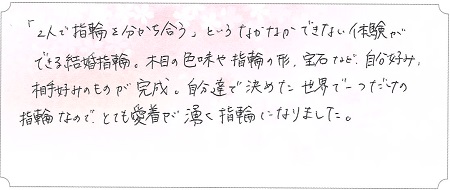 「2人で指輪を分かち合う」というなかなかできない体験が
できる結婚指輪。木目の色味や指輪の形、宝石など、自分好み、
相手好みのものが完成。自分達で決めた世界で一つだけの
指輪なので、とても愛着が湧く指輪になりました。